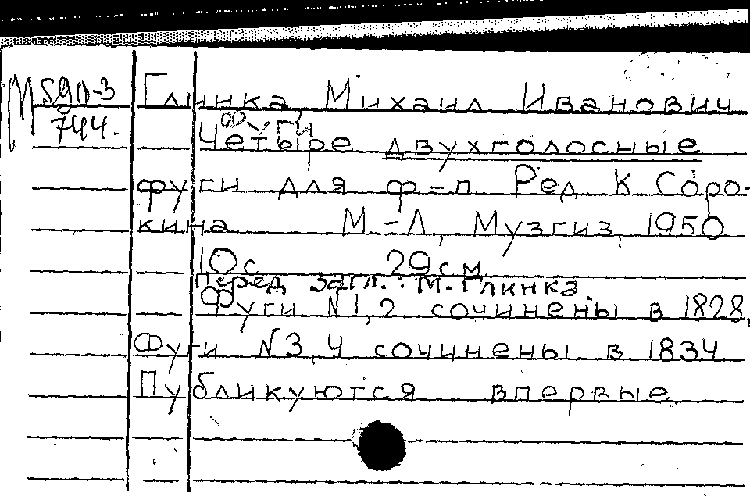 М 590-3 Глинка, Михаил Иванович
744. Фуги
Четыре двухголосные
фуги для ф=п. Ред. К. Соро-
кина М=Л, Музгиз, 1950
10 с. 29 см
Перед загл.: М. Глинка
Фуги N 1, 2 сочинены в 1828,
Фуги N 3, 4 сочинены в 1834
Публикуются впервые